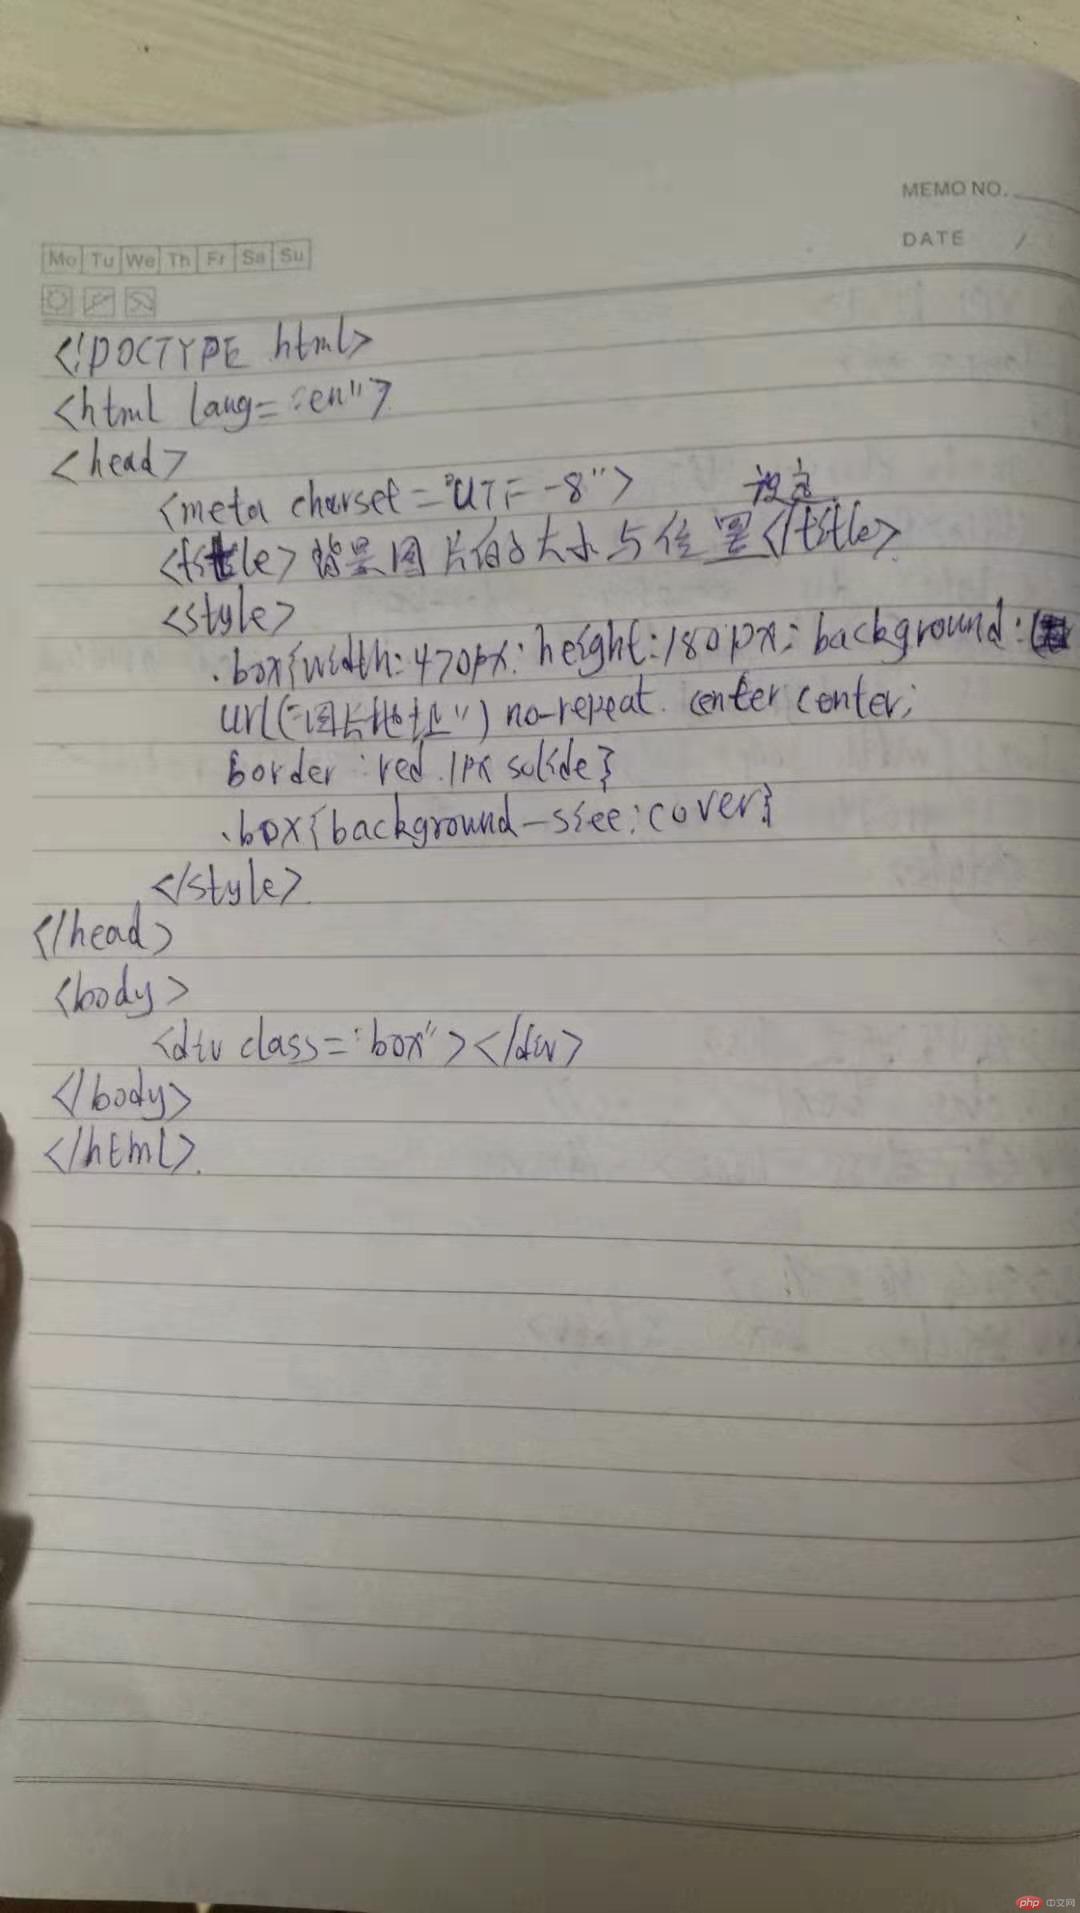 MEMO NO.
DATE /
Mo Tu We Th Fr Sa Su
<!DOCTYPE html>
<html lang="en">
<head>
<meta charset="UTF-8">
设定
<title>背景图片的大小与位置</title>
<style>
.box{width:470px;height:180px;background:
url("图片地址") no-repeat center center;
border:red 1px solide}
.box{background-size:cover}
</style>
</head>
<body>
<div class="box"></div>
</body>
</html>
php 中文网